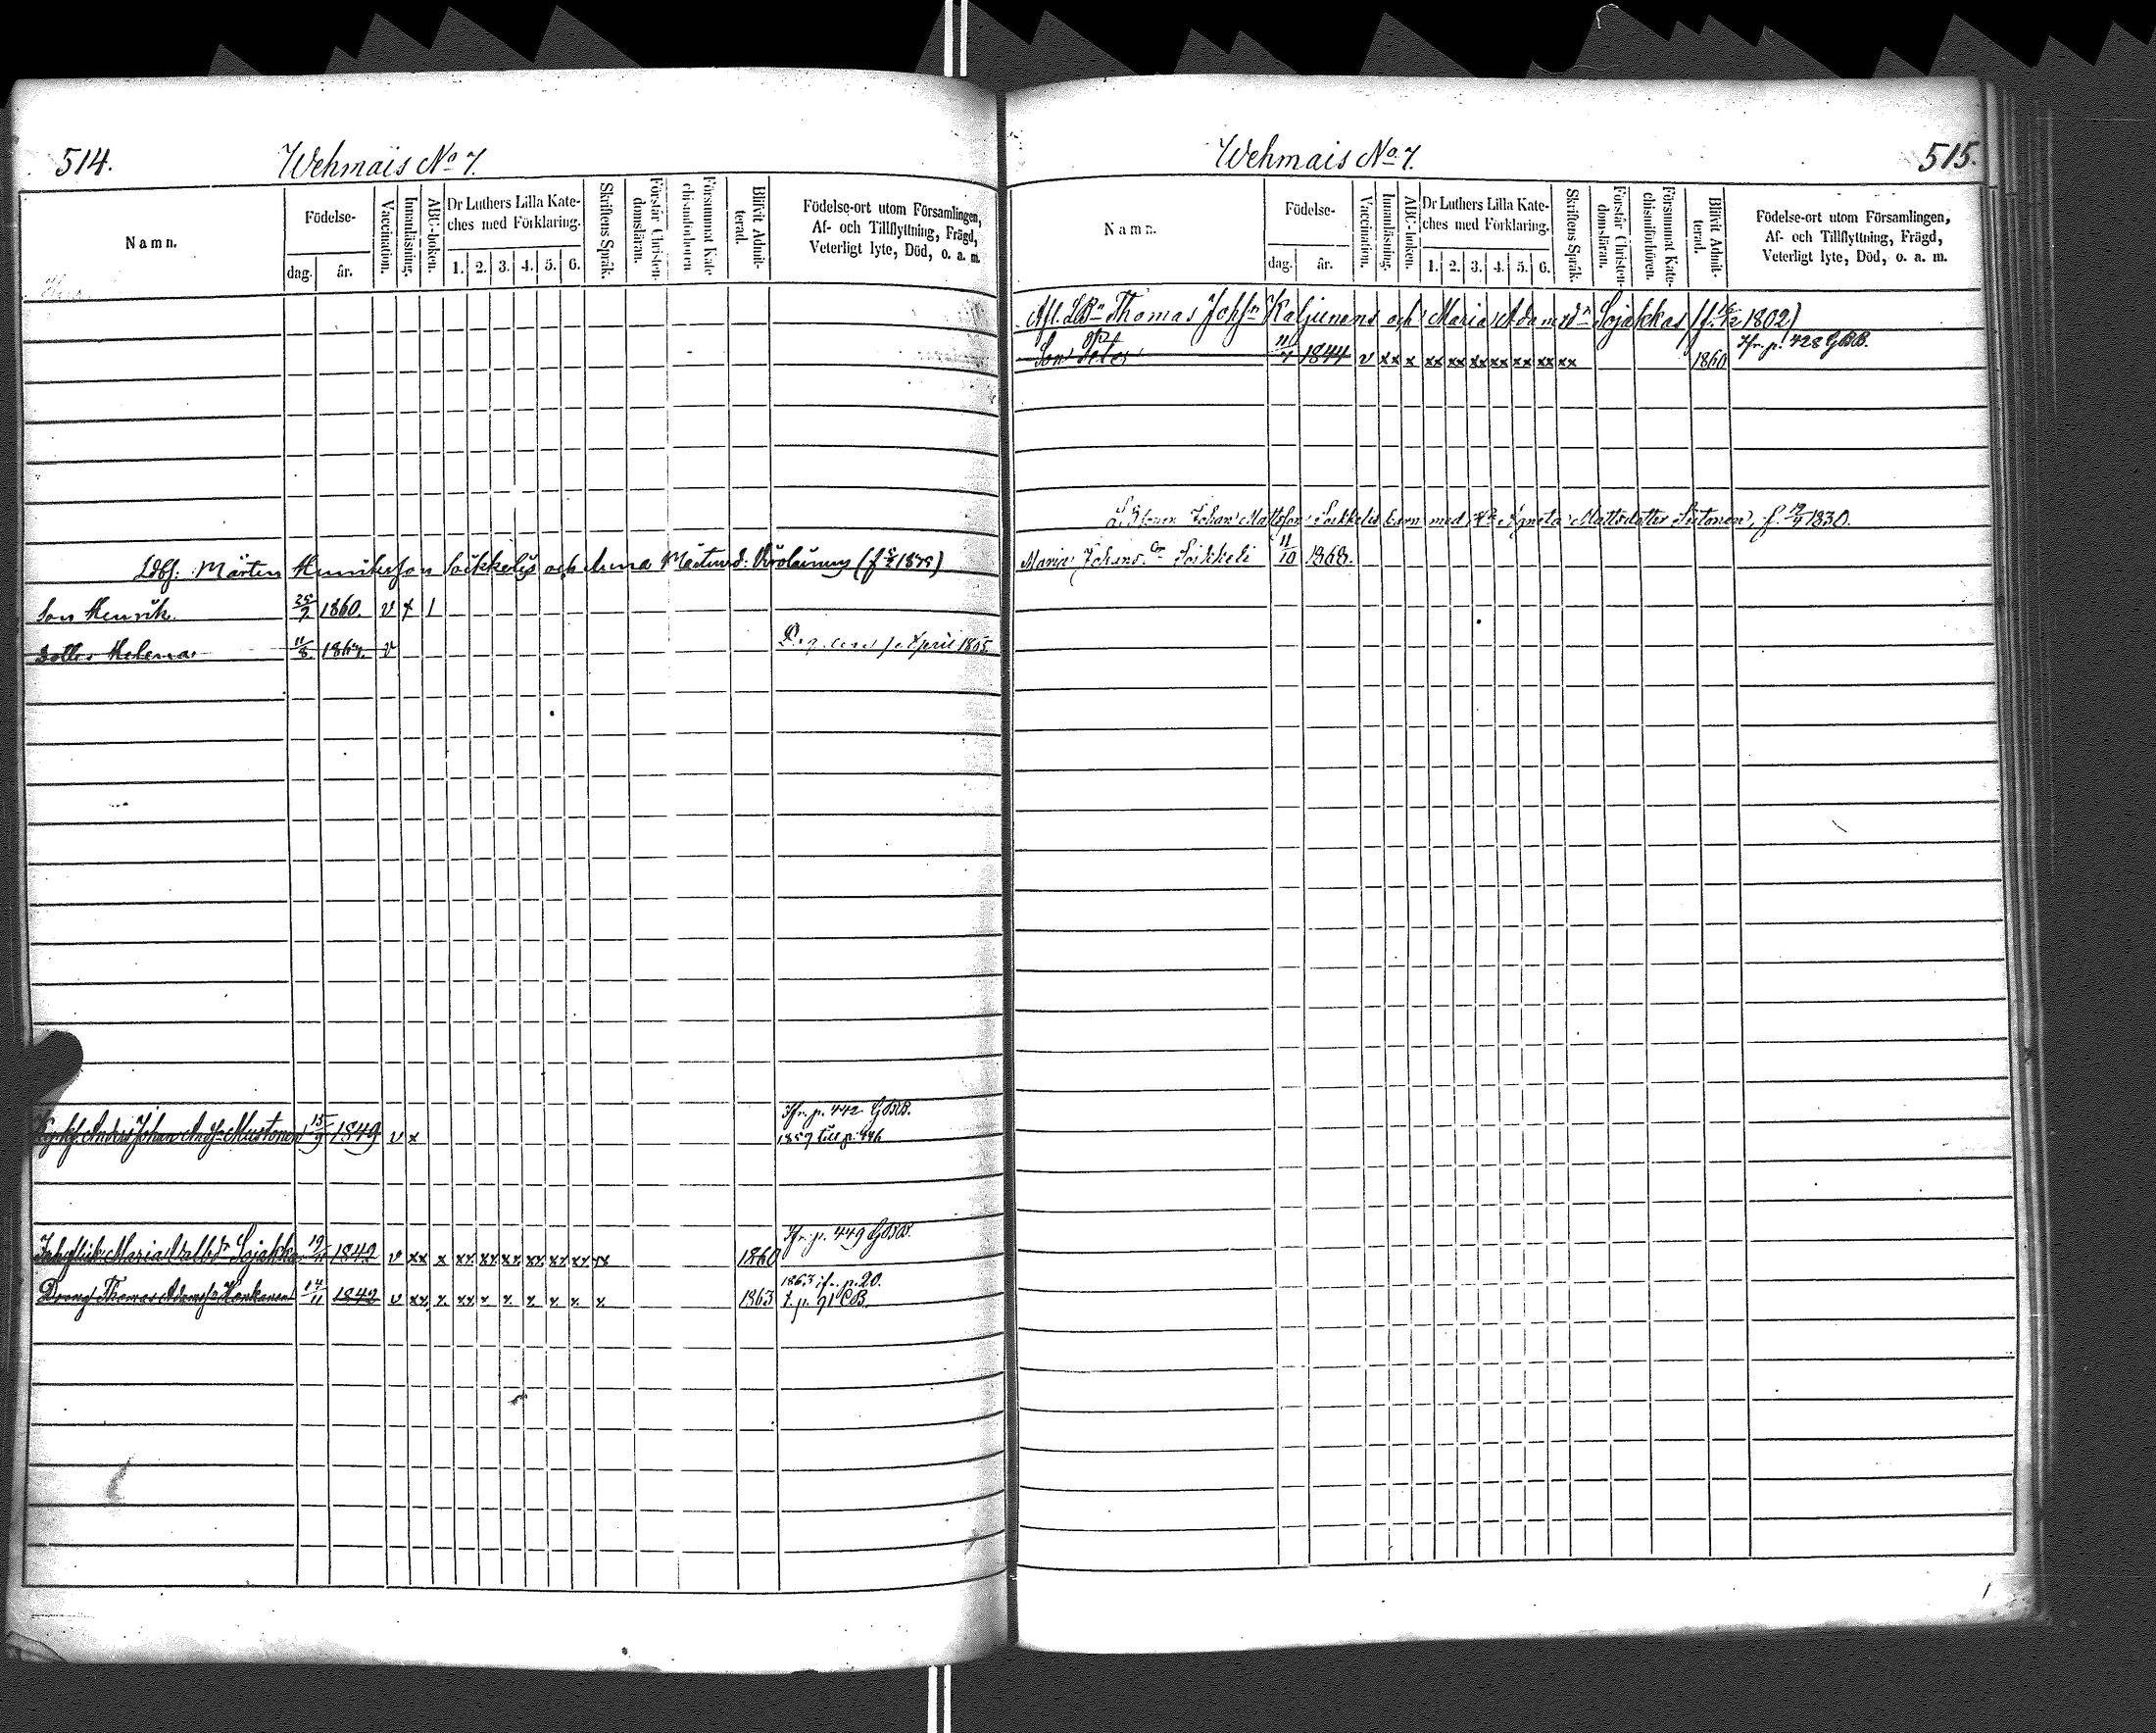 514.
Wehmais No 7.
Namn.
Födelse-
dag. år.
Vaccination.
Innanläsning.
ABC-boken.
Dr Luthers Lilla Kate-
ches med Förklaring.
1. 2. 3. 4. 5. 6.
Skriftens Språk.
Förstår Christen-
domsläran.
Försummat Kate-
chismiförhören
Blifvit Admit-
terad.
Födelse-ort utom Församlingen,
Af- och Tillflyttning, Frägd,
Veterligt lyte, Död, o. a. m.
Mårten och Anna
Son Henrik 25/7 1860. v x 1
Dotter Helena 11/8 v April
Jfr. p. 442 GBB.
Anders Johan Mustonen 15/9 1849 v x 1859 till p. 446
Jfr. p. 449 GBB.
Maria Sojakka 19/11 1842 v xx x xx xx xx xx xx xx xx 1860
1863 if. p. 20.
Dreng Thomas Adamsn Honkanen 14/11 1842 v xx x xx x x x x x x 1863 t. p. 91 CB.
515.
Wehmais No 7.
Namn.
Födelse-
dag. år.
Vaccination.
Innanläsning.
ABC-boken.
Dr Luthers Lilla Kate-
ches med Förklaring.
1. 2. 3. 4. 5. 6.
Skriftens Språk.
Förstår Christen-
domsläran.
Försummat Kate-
chismiförhören.
Blifvit Admit-
terad.
Födelse-ort utom Församlingen,
Af- och Tillflyttning, Frägd,
Veterligt lyte, Död, o. a. m.
Afl. Thomas Johsn Kaljunens och Maria Adamsdr Sojakkas 1802)
Jfr. p. 428 GBB.
Son Peter 11/7 1844 v xx x xx xx xx xx xx xx xx 1860
Johan Mattsson Soikkelis barn med Agneta Mattsdotter f. 1830.
Maria Johansdr Soikkeli 11/10 1868.